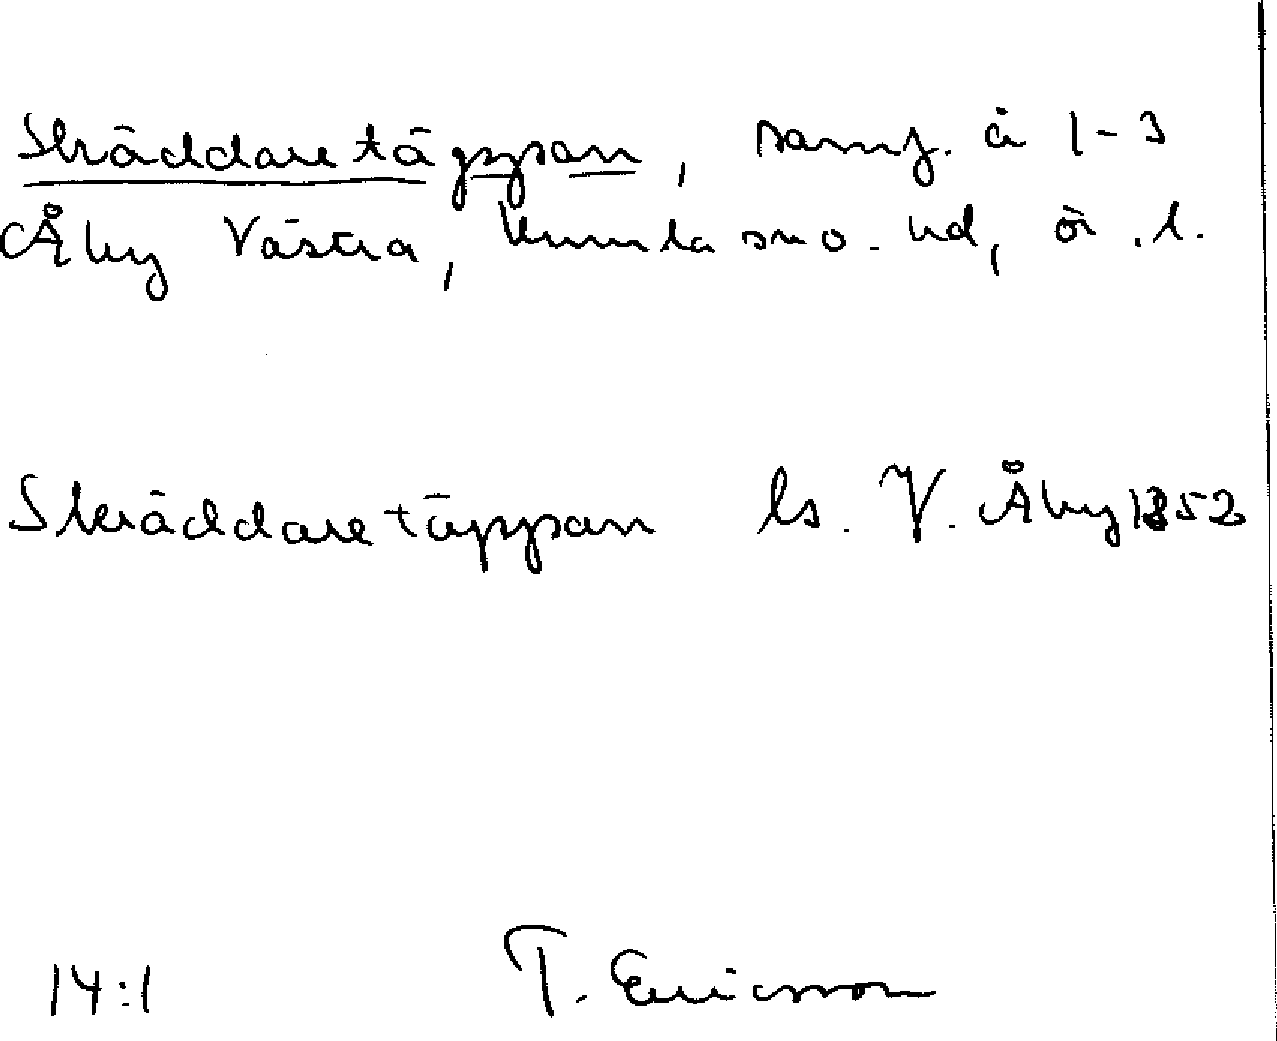 Skräddaretäppan, samf. å 1-3
Åby Västra, Kumla sn o. hd, ö.l.
Skräddaretäppan ls. V. Åby 1852
14:1 T. Ericsson